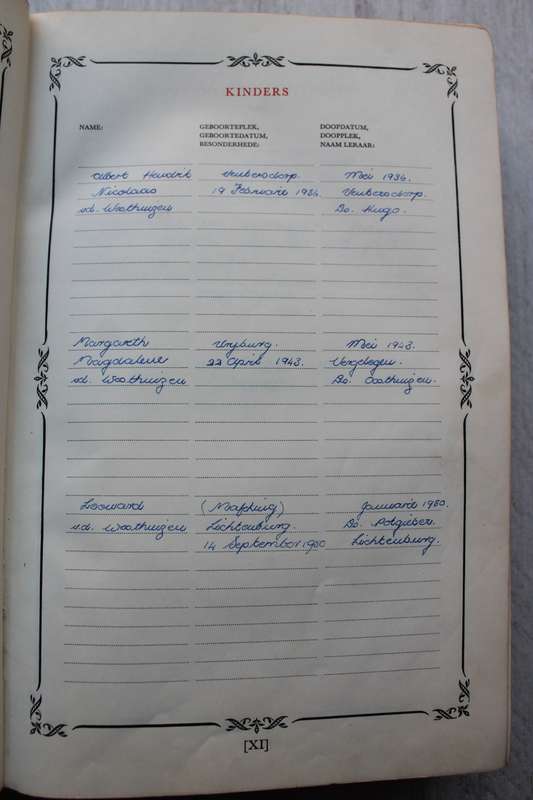 KINDERS
NAME:
GEBOORTEPLEK,
GEBOORTEDATUM,
BESONDERHEDE:
DOOPDATUM,
DOOPPLEK,
NAAM LERAAR:
Albert Hendrik Ventersdorp. Mei 1936.
Nicolaas 19 Februarie 1936 Ventersdorp.
v.d. Westhuizen Ds. Hugo.
Margareth Vryburg. Mei 1943.
Magdalene 22 April 1943. Vergelegen.
v.d. Westhuizen Ds. Oosthuizen.
Leonard (Mafikeng) Januarie 1950.
v.d. Westhuizen Lichtenburg. Ds. Potgieter.
14 September Lichtenburg.
[XI]